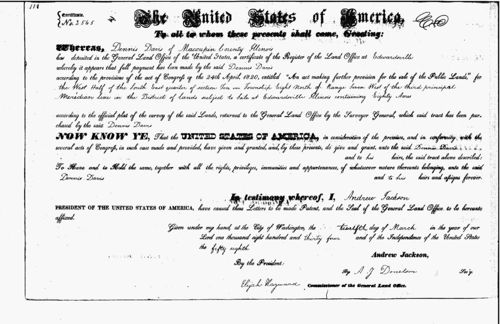 Certificate
No. 2565
The United States of America,
To all to whom these presents shall come, Greeting:
Whereas, Dennis Davis of Macoupin County Illinois
has deposited in the General Land Office of the United States, a certificate of the Register of the Land Office at Edwardsville
whereby it appears that full payment has been made by the said Dennis Davis
according to the provisions of the act of Congress of the 24th April, 1820, entitled "An act making further provision for the sale of the Public Lands," for
the West Half of the South East quarter of section Ten in Township Eight North of Range Seven West of the third principal
Meridian Law in the District of Lands subject to sale at Edwardsville Illinois containing Eighty Acres
according to the official plat of the survey of the said Lands, returned to the General Land Office by the Surveyor General, which said tract has been pur-
chased by the said Dennis Davis
NOW KNOW YE, That the UNITED STATES OF AMERICA, in consideration of the premises, and in conformity with the
several acts of Congress, in such case made and provided, have given and granted, and, by these presents, do give and grant, unto the said Dennis Davis
and to his heirs, the said tract above described:
To Have and to Hold the same, together with all the rights, privileges, immunities and appurtenances, of whatsoever nature thereunto belonging, unto the said
Dennis Davis and to his heirs and assigns forever.
In testimony whereof, I, Andrew Jackson
PRESIDENT OF THE UNITED STATES OF AMERICA, have caused these Letters to be made Patent, and the Seal of the General Land Office to be hereunto
affixed.
Given under my hand, at the City of Washington, the twelfth day of March in the year of our
Lord one thousand eight hundred and thirty four and of the Independence of the United States
the fifty eighth
Andrew Jackson,
By the President:
By A. J. Donelson Sec'y.
Elijah Hayward Commissioner of the General Land Office.